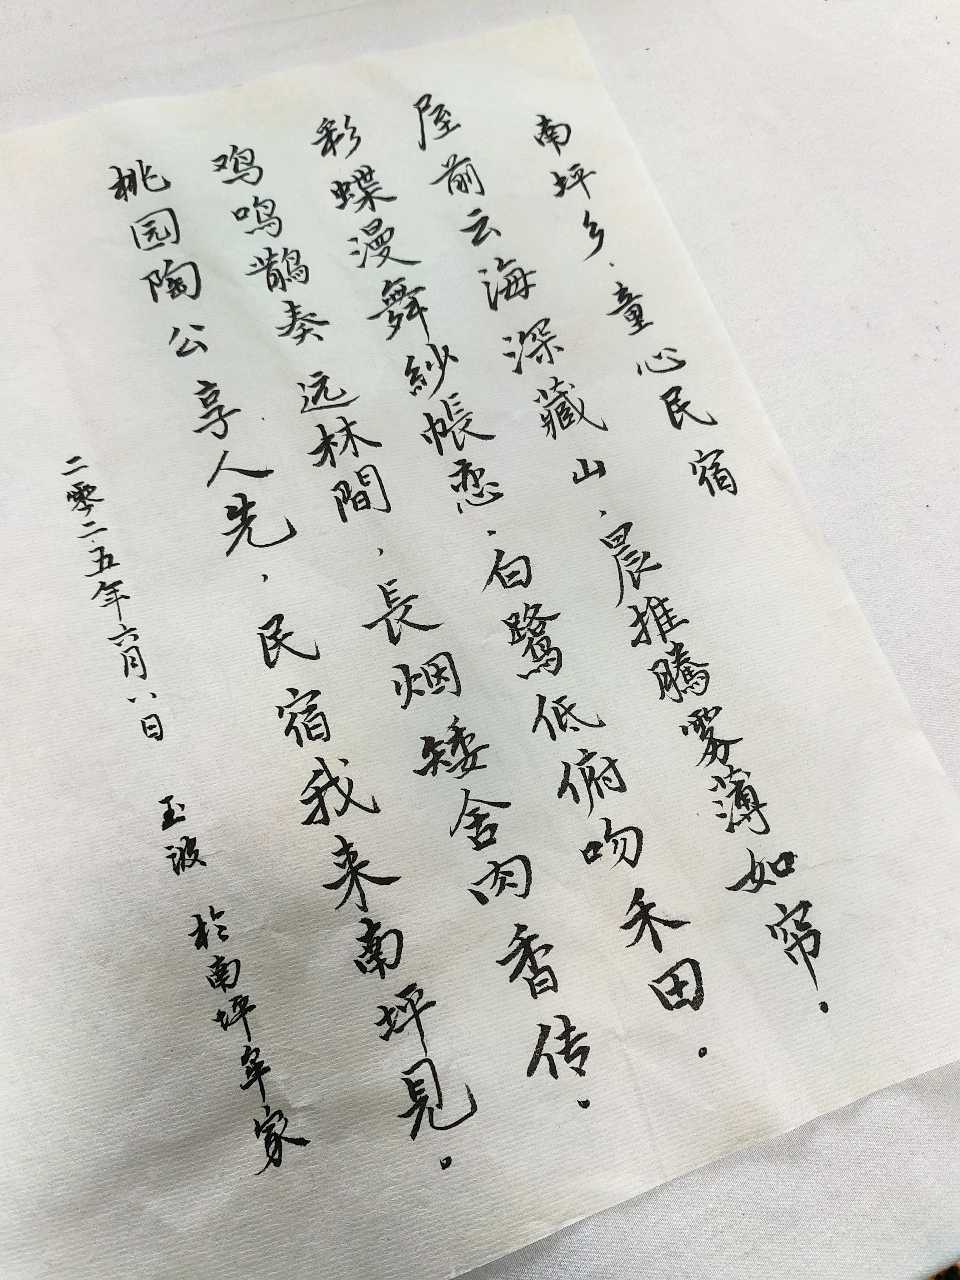 南坪乡.童心民宿
屋前云海深藏山,晨推騰雾薄如帘.
彩蝶漫舞紗帳恋,白鹭低俯吻禾田.
鸡鸣鹊奏远林間,長烟矮舍肉香传.
桃园陶公享人先,民宿我来南坪見.
二零二五年六月八日 玉波 於南坪牟家